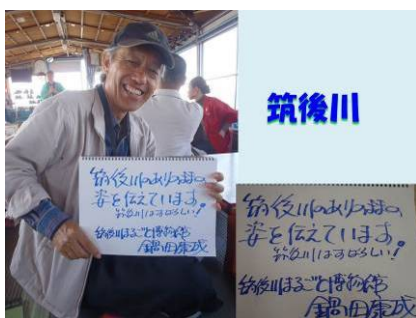 筑後川のありのままの
姿を伝えています。
筑後川はすばらしい!
筑後川まるごと博物館
鍋田康成
筑後川
筑後川のありのままの
姿を伝えています。
筑後川はすばらしい!
筑後川まるごと博物館
鍋田康成